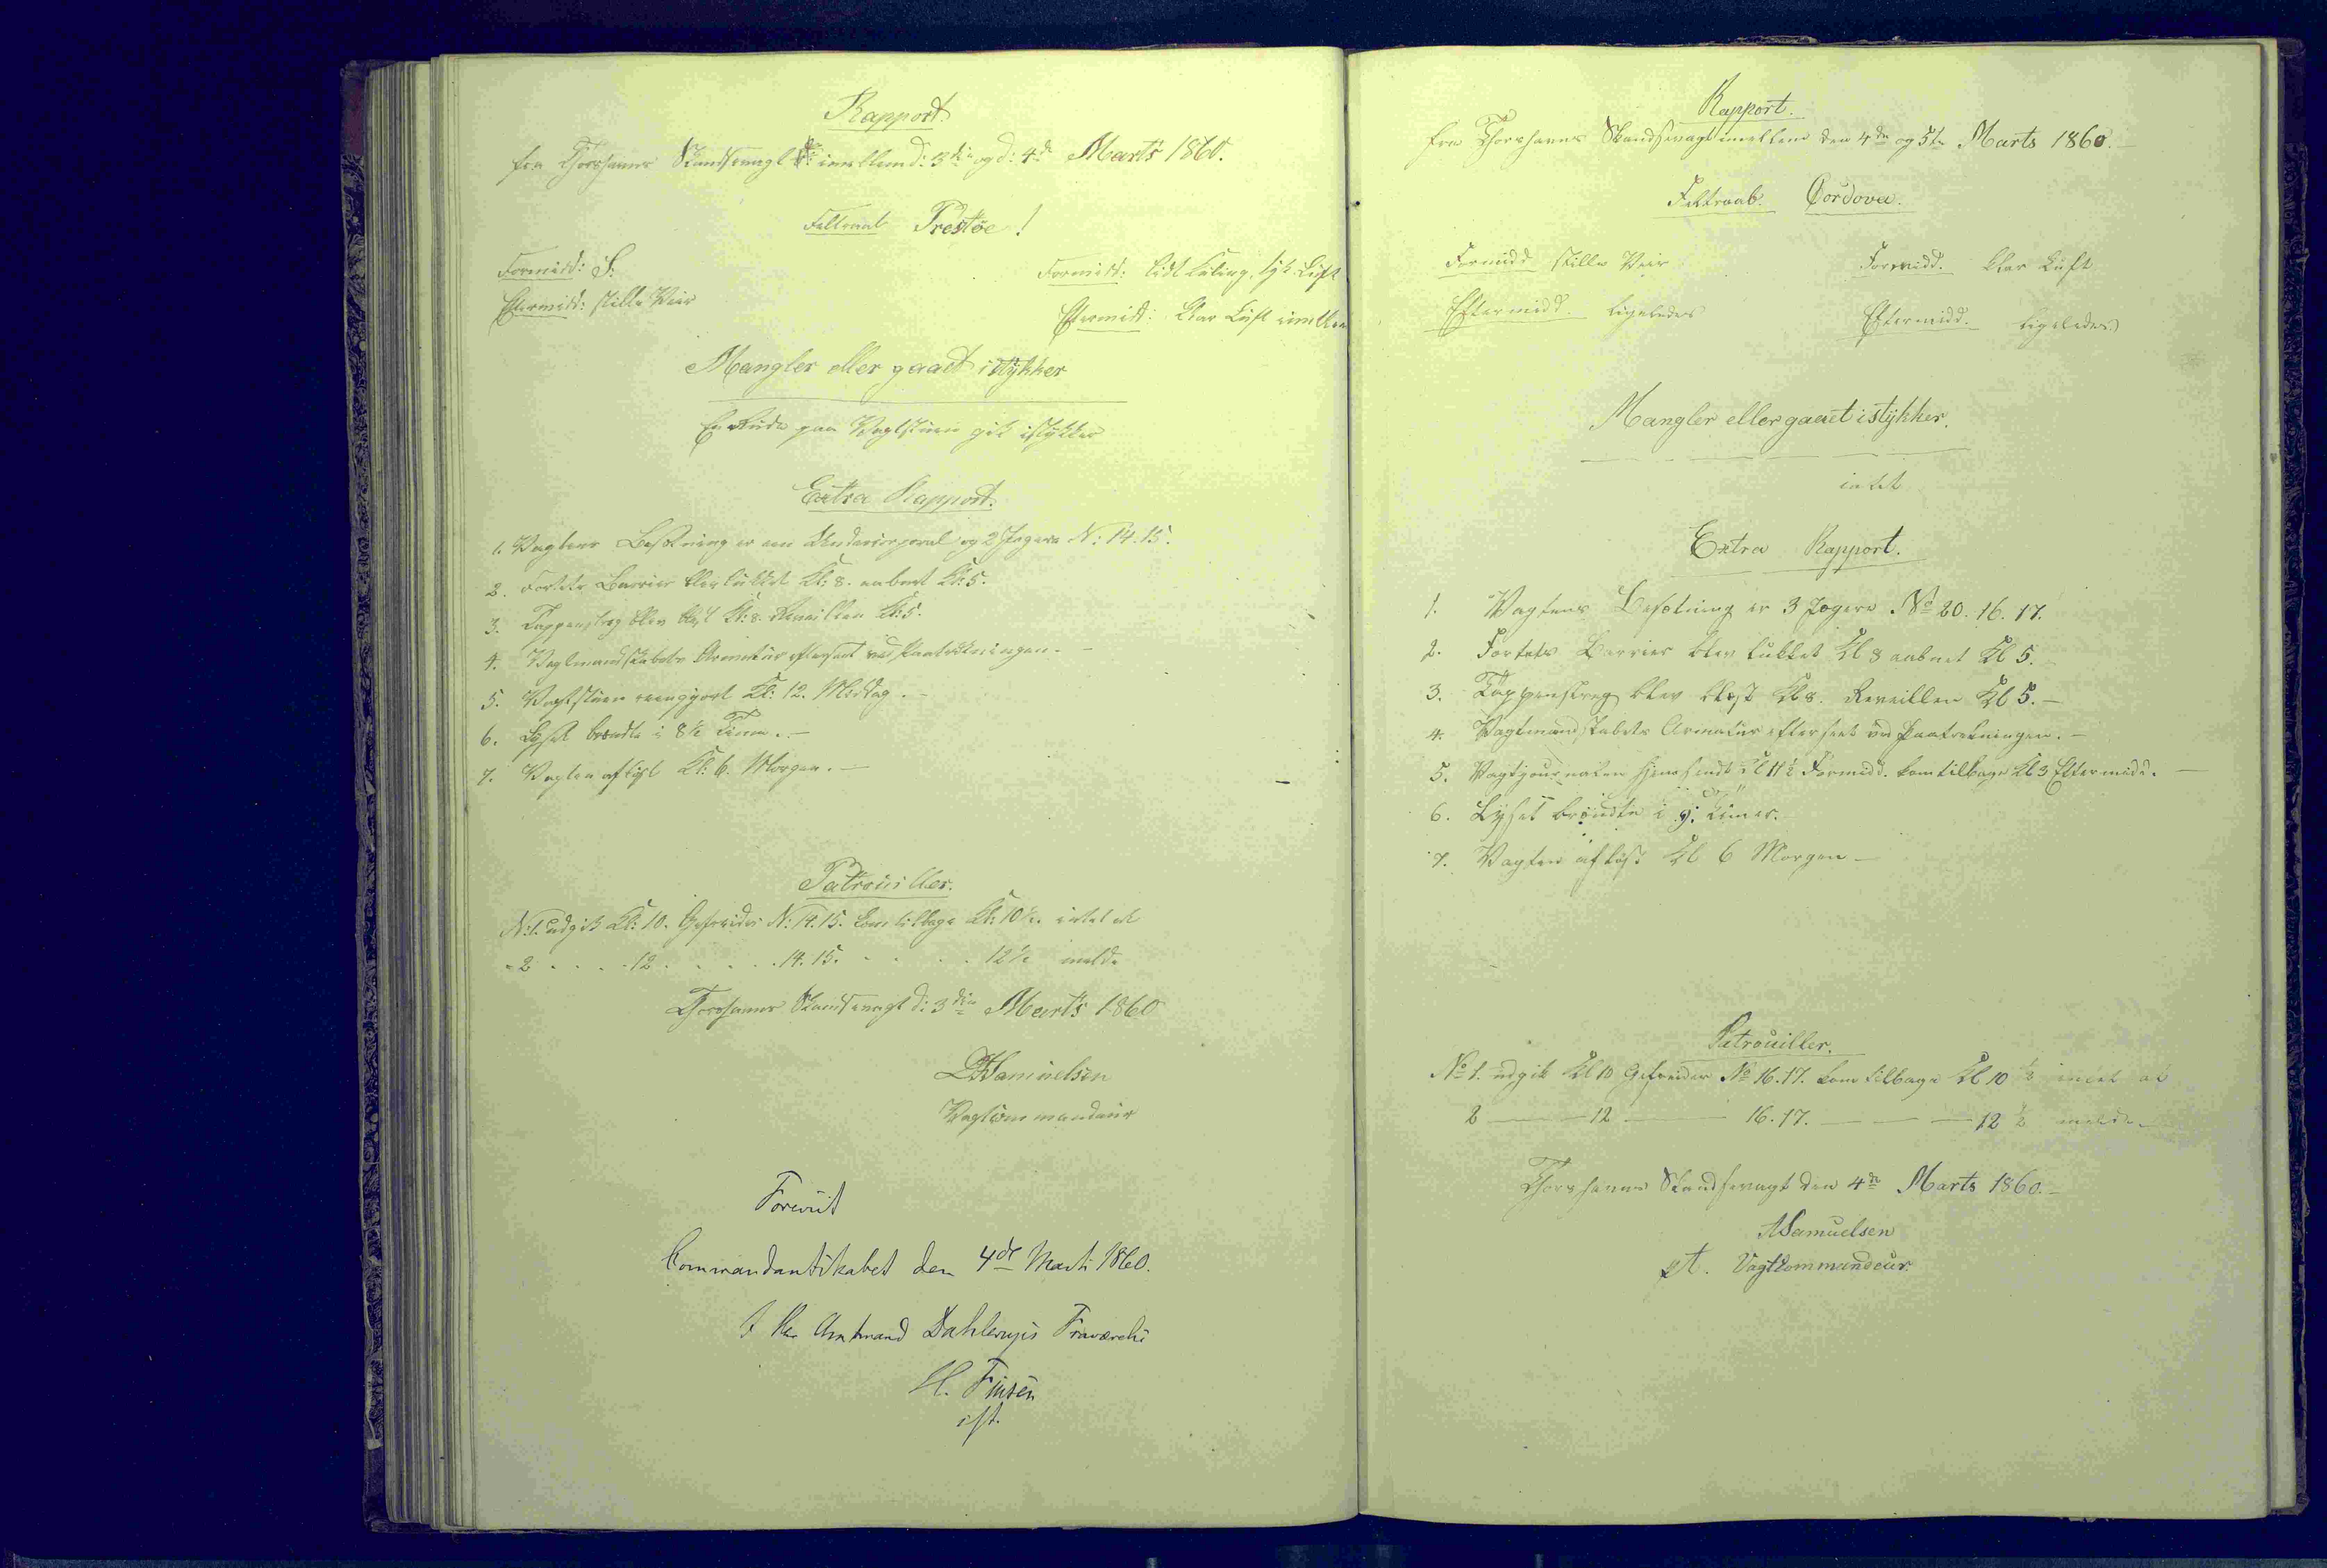 Rapport.
fra Thorshavns Skandsevagt imellem d: 3die og d: 4de Marts 1860.
Feltraab Prestöe!
Formidd: S:
Formidd: lidt Kuling, tyk Luft
Eftermidd: stille Veir
Eftermidd: klar Luft imellem
Mangler eller gaaet istÿkker
En Rude paa Vagtstuen gik istykker
Extra Rapport.
1. Vagtens Besætning er en Undercorporal og 2 Jægere N: 14. 15.
2. Fortets Barrier blev lukket Kl: 8. aabnet Kl: 5.
3. Tappenstreg blev blæst Kl: 8. Reveillen Kl: 5.
4. Vagtmandskabets Armatur efterseet ved Paatrækningen. -
5. Vagtstuen reengjort Kl: 12. Middag. -
6. Lyset brændte i 8½ Time. -
7. Vagten afløst Kl: 6. Morgen. -
Patrouiller.
N: 1. udgik Kl: 10. Gefreider N: 14. 15. kom tilbage Kl: 10½. intet at
- 2 - - - - 12 - - - - - 14. 15. - - - - 12½ melde
Thorshavns Skandsevagt d: 3die Marts 1860
Samuelsen
Vagtcommandeur
Foreviist
Commandantskabet den 4de Marts 1860.
I Hr. Amtmand Dahlerups Fraværelse
H. Finsen
cst.
Rapport.
fra Thorshavns Skandsevagt imellem den 4de og 5te Marts 1860. -
Feltraab. Cordova.
Formidd stille Veir
Formidd. klar Luft
Eftermidd. ligeledes
Eftermidd. ligeledes
Mangler eller gaaet istÿkker.
intet
Extra Rapport.
1. Vagtens Besætning er 3 Jægere No 20. 16. 17.
2. Fortets Barrier blev lukket Kl 8 aabnet Kl 5.
3. Tappenstreg blev blæst Kl 8. Reveillen Kl 5. -
4. Vagtmandskabets Armatur efterseet ved Paatrækningen. -
5. Vagtjournalen hjemsendt Kl 11½ Formidd. kom tilbage Kl 3 Eftermidd. -
6. Lyset brændte i 9: Timer.
7. Vagten afløst Kl 6 Morgen -
Patrouiller.
No 1. udgik Kl 10 Gefreider No 16. 17. kom tilbage Kl 10½ intet at
2 — — 12 — — 16. 17. — — — 12½ melde. -
Thorshavns Skandsevagt den 4de Marts 1860. -
Samuelsen
pt. Vagtkommandeur.